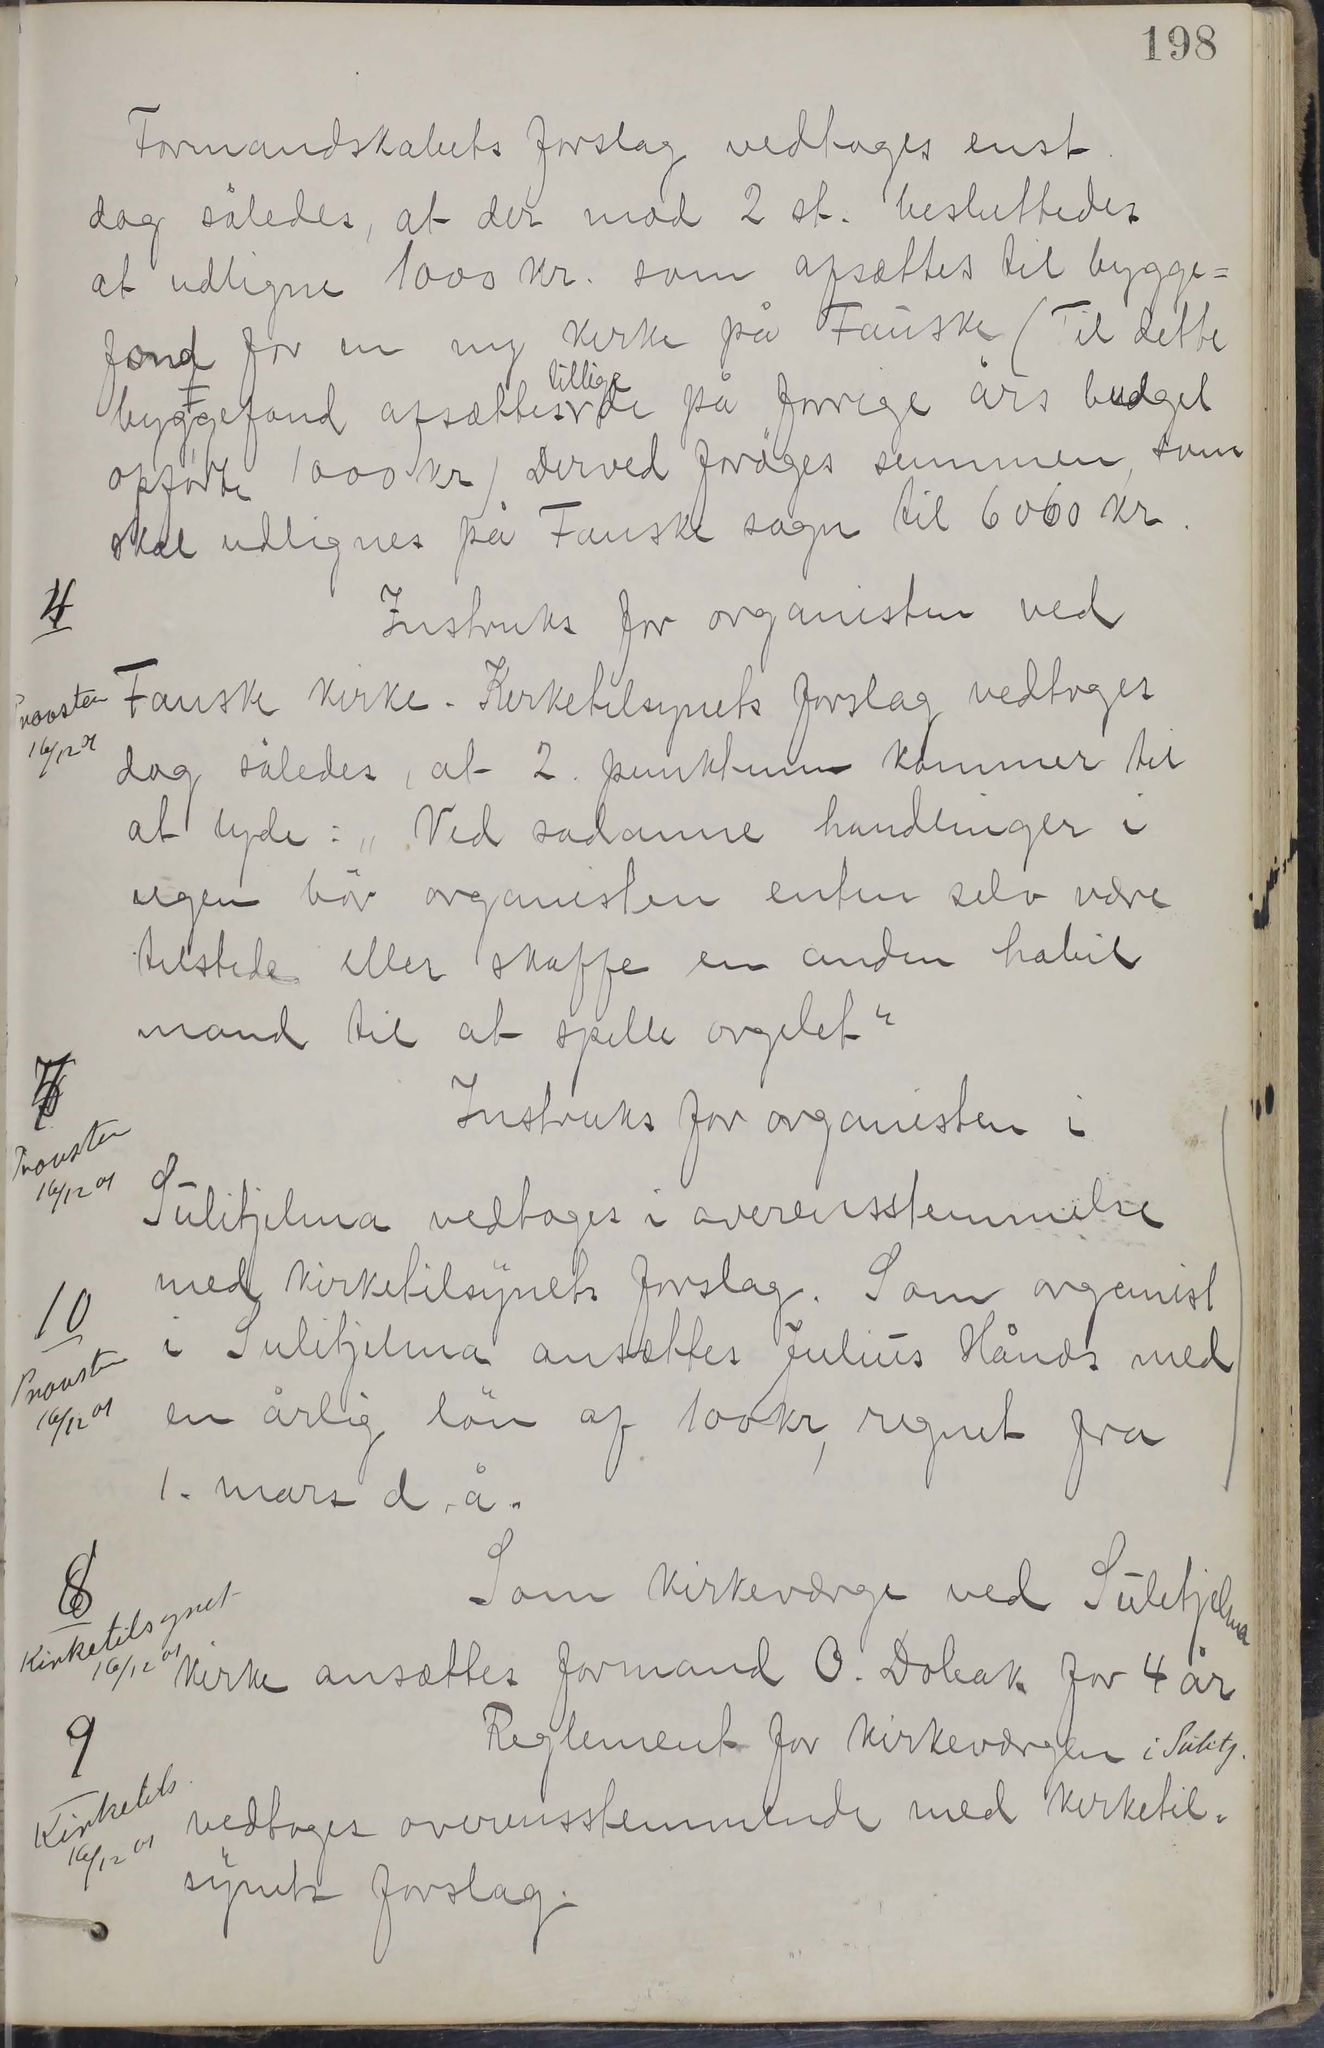 198
Formandskabets forslag vedtoges enst.
dog således, at der mod 2 st. besluttedes
at udligne 1000 kr. som afsættes til bygge=
fond for en ny kirke på Fauske (Til dette
byggefond afsættes tillige de på forrige års budget
opførte 1000 kr) Derved forøges summen, som
skal udlignes på Fauske sogn til 6060 kr.
4
Instruks for organisten ved
Provsten
16/12 01
Fauske kirke. Kirketilsynets forslag vedtoges
dog således, at 2. punktum kommer til
at lyde: „Ved sadanne handlinger i
ugen bör organisten enten selv være
tilstede eller skaffe en anden habil
mand til at spille orgelet“
7
Instruks for organisten i
Provsten
16/12 01
Sulitjelma vedtoges i overensstemmelse
med kirketilsynets forslag. Som organist
10
Provsten
16/12 01
i Sulitjelma ansættes Julius Hånds med
en årlig lön af 100 kr, regnet fra
1. mars d. å.
8
Som kirkeværge ved Sulitjelma
Kirketilsynet
16/12 01
kirke ansættes formand O. Doleak for 4 år
9
Reglement for kirkeværgen i Sulitj.
Kirketils.
16/12 01
vedtoges overensstemmende med kirketil=
synets forslag.